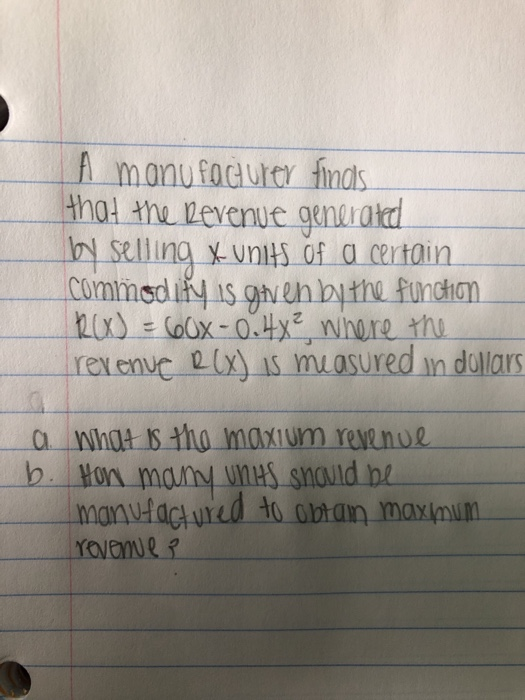 A manufacturer finds
that the Revenue generated
by selling x units of a certain
commodity is given by the function
R(x) = 60x - 0.4x², where the
revenue R(x) is measured in dollars
a. What is the maxium revenue
b. How many units should be
manufactured to obtain maxmum
revenue?